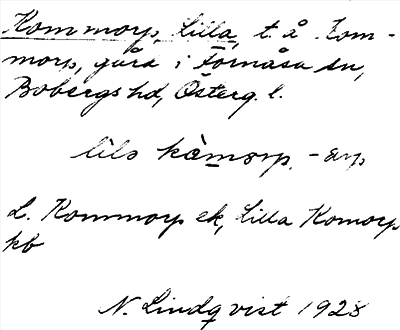 Kommorp, Lilla, t. å. Kom-
morp, gård i Fornåsa sn,
Bobergs hd, Österg. l.
lilo kàmorp. - arp
L. Kommorp ek, Lilla Komorp
kb
N. Lindqvist 1928